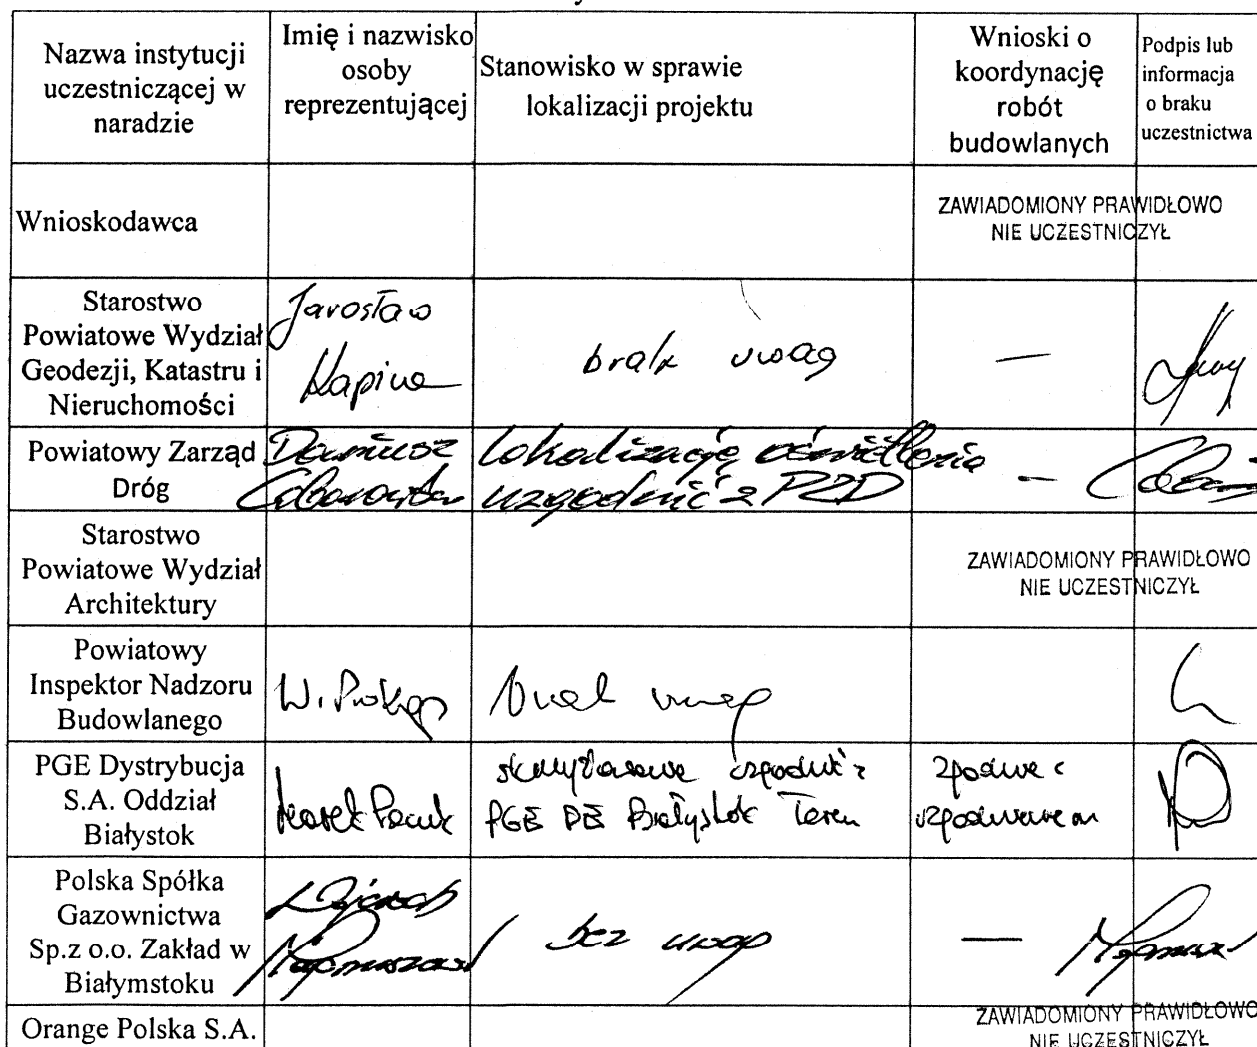 Nazwa instytucji
uczestniczącej w
naradzie
Imię i nazwisko
osoby
reprezentującej
Stanowisko w sprawie
lokalizacji projektu
Wnioski o
koordynację
robót
budowlanych
Podpis lub
informacja
o braku
uczestnictwa
Wnioskodawca
ZAWIADOMIONY PRAWIDŁOWO
NIE UCZESTNICZYŁ
Starostwo
Powiatowe Wydział
Geodezji, Katastru i
Nieruchomości
Jarosław
Kapica
brak uwag
—
Powiatowy Zarząd
Dróg
Dariusz
lokalizację oświetlenia
uzgodnić z PZD
–
Starostwo
Powiatowe Wydział
Architektury
ZAWIADOMIONY PRAWIDŁOWO
NIE UCZESTNICZYŁ
Powiatowy
Inspektor Nadzoru
Budowlanego
W. Prokop
brak uwag
PGE Dystrybucja
S.A. Oddział
Białystok
Marek
skrzyżowanie uzgodnić z
PGE RE Białystok Teren
zgodnie z
uzgodnieniem
Polska Spółka
Gazownictwa
Sp.z o.o. Zakład w
Białymstoku
bez uwag
—
Orange Polska S.A.
ZAWIADOMIONY PRAWIDŁOWO
NIE UCZESTNICZYŁ